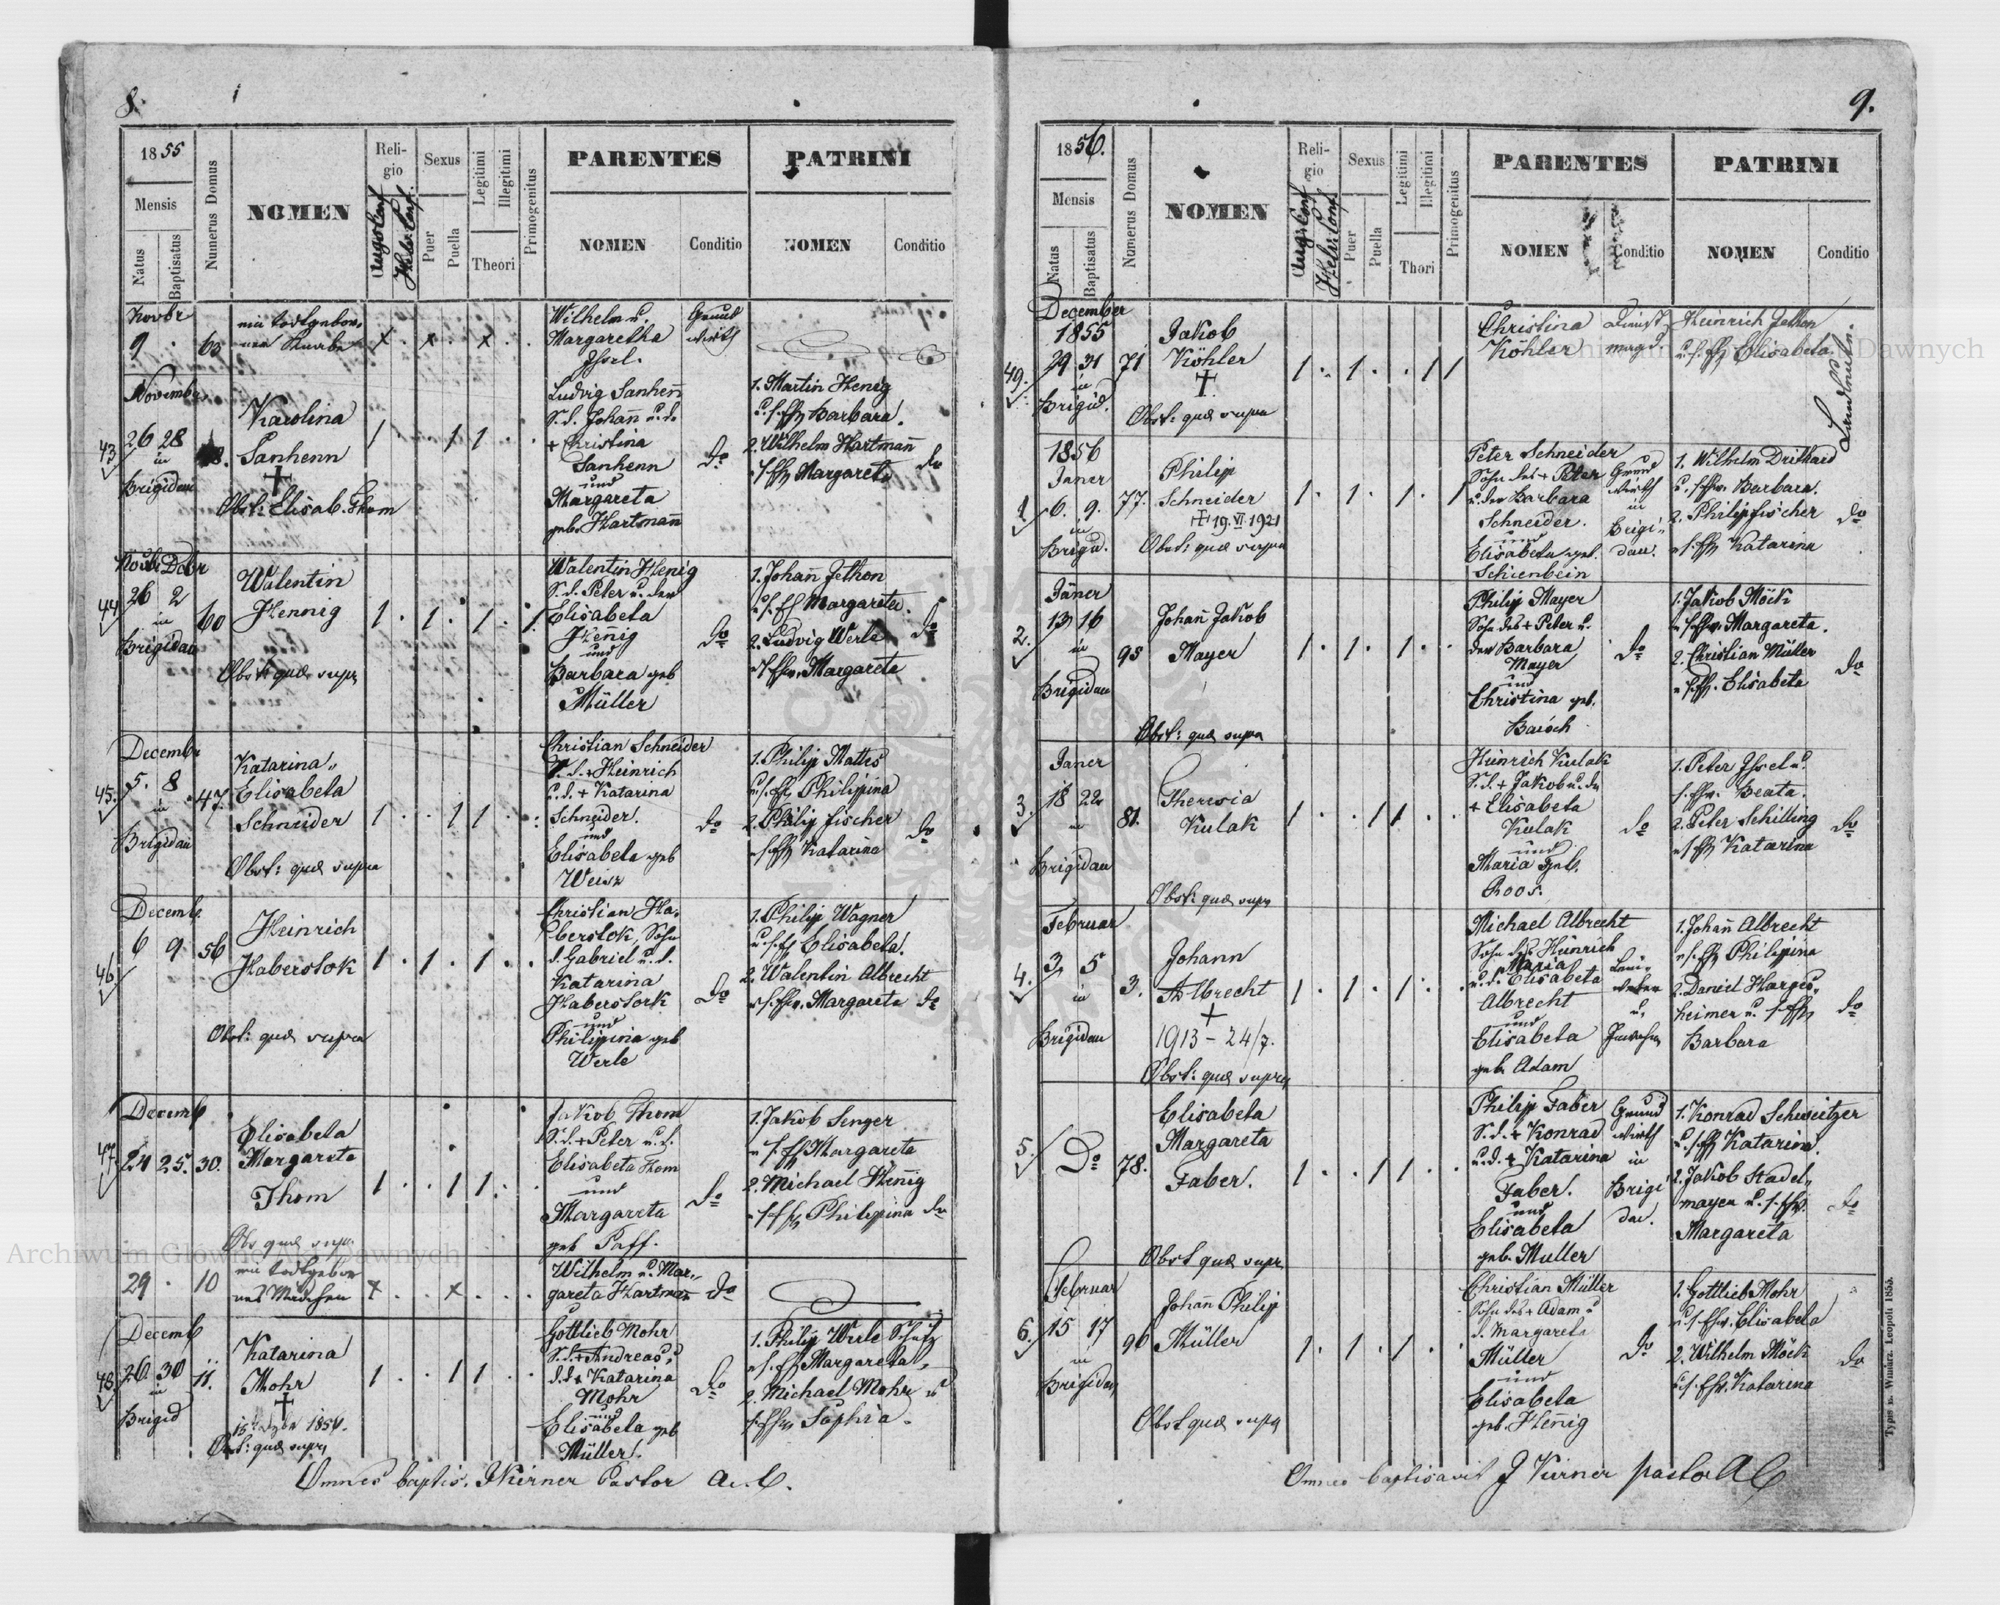 8.
1855
Mensis
Natus
Baptisatus
Numerus Domus
NOMEN
Religio
Augsb. Conf.
Helv. Conf.
Sexus
Puer
Puella
Legitimi
Illegitimi
Theori
Primogenitus
PARENTES
NOMEN
Conditio
PATRINI
NOMEN
Conditio
Novbr
9 . 63
x . x . x . .
Wilhelm u.
Margaretha
Issel.
Grund
wirth
Novembr
43
26 28
in
Brigidau
Karolina
Sanhenn
†
Obst: Elisab. Thom
1 . . 1 1 . .
Ludvig Sanhen̄
S. d. Johan̄ u. d.
+ Christina
Sanhenn
und
Margareta
geb. Hartman̄
do
1. Martin Henig
u. s. Ehfr Barbara.
2. Wilhelm Hartman̄
u s Ehfr Margareta
do
Novbr Decbr
44
26 2
in
Brigidau
60
Walentin
Hennig
Obst: quæ supra
1 . 1 . 1 . 1
Walentin Henig
S. d. Peter u. der
Elisabeta
Hen̄ig
und
Barbara geb
Müller
do
1. Johan̄ Jethon
u. s. Ehfr Margareta.
2. Ludvig Werle
u s Ehfr. Margareta
do
Decembr
45.
5. 8
in
Brigidau
47.
Katarina
Elisabeta
Schneider
Obst: quæ supra
1 . . 1 1 . .
Christian Schneider
S. d. + Heinrich
u. d. + Katarina
Schneider.
und
Elisabeta geb
Weisz
do
1. Philip Mattis
u. s. Ehfr Philipina
2. Philip Fischer
u s Ehfr Katarina
do
Decemb.
46
6 9 56
Heinrich
Haberstok
Obst: quæ supra
1 . 1 . 1 . .
Christian Ha-
berstok, Sohn
d. Gabriel u. d.
Katarina
Haberstork
und
Philipina geb
Werle
do
1. Philip Wagner
u. s. Ehfr Elisabeta.
2. Walentin Albrecht
u s. Ehfr. Margareta
do
Decemb
47
24 25. 30.
Elisabeta
Margareta
Thom
Obs quæ supr.
1 . . 1 1 . .
Jakob Thom
S. d. + Peter u. d.
Elisabeta Thom
und
Margareta
geb Paff.
do
1. Jakob Senger
u s. Ehfr Margareta
2. Michael Hen̄ig
u s Ehfr Philipina
do
29 . 10
x . . x . . .
Wilhelm u. Mar-
gareta Hartman
do
Decemb
48
26 30
in
Brigid
11.
Katarina
Mohr
†
1856.
Obst: quæ supr.
1 . . 1 1 . .
Gottlieb Mohr
S. d. + Andreas u
d. + Katarina
Mohr
und
Elisabeta geb
Müller.
do
1. Philip Werle Schulz
u s. Ehfr Margareta,
2. Michael Mohr u
s. Ehfr Sophia.
Omnes baptis. J Kirner Pastor A. C.
9.
1856.
Mensis
Natus
Baptisatus
Numerus Domus
NOMEN
Religio
Augsb. Conf.
Helv. Conf.
Sexus
Puer
Puella
Legitimi
Illegitimi
Thori
Primogenitus
PARENTES
NOMEN
Conditio
PATRINI
NOMEN
Conditio
December
1855
49.
29 31
in
Brigid.
71
Jakob
Köhler
†
Obst: quæ supra
1 . 1 . . 1 1
Christina
Köhler
Dienst
magd
Heinrich Jethon
u. s. Ehfr Elisabeta.
1856
Janer
1
6. 9.
in
Brigid.
77.
Philip
Schneider
† 19. VI. 1921
Obst: quæ supra
1 . 1 . 1 . 1
Peter Schneider
Sohn des + Peter
u. der Barbara
Schneider.
und
Elisabeta geb.
Schienbein
Grund
wirth
in
Brigi-
dau.
1. Wilhelm Drithard
u. s. Ehfr. Barbara.
2. Philip Fischer
u s. Ehfr Katarina
do
Jäner
2.
13 16
in
Brigidau
95
Johan̄ Jakob
Mayer
Obst: quæ supra
1 . 1 . 1 . .
Philip Mayer
Sohn des + Peter u.
der Barbara
Mayer
und
Christina geb.
Baisch
do
1. Jakob Möck
u s. Ehfr. Margareta.
2. Christian Müller
u s. Ehfr. Elisabeta
do
Janer
3.
18 22
in
Brigidau
81.
Theresia
Kulak
Obst: quæ supr.
1 . . 1 1 . .
Heinrich Kulak
S. d. + Jakob u. der
+ Elisabeta
Kulak
und
Maria geb.
Roos.
do
1. Peter Issel u.
s. Ehfr. Beata.
2. Peter Schilling
u s Ehfr Katarina
do
Februar
4.
3 5
in
Brigidau
3.
Johann
Albrecht
+
1913 - 24/7.
Obst: quæ supra
1 . 1 . 1 . .
Michael Albrecht
Sohn des Heinrich
Maria
u. d. Elisabeta
Albrecht
und
Elisabeta
geb. Adam
1. Johan̄ Albrecht
u s. Ehfr Philipina
2. Daniel Harges-
heimer u. s. Ehfr
Barbara
do
5.
Do
78.
Elisabeta
Margareta
Faber.
Obst quæ supr.
1 . . 1 1 . .
Philip Faber
S. d. + Konrad
u. d. + Katarina
Faber.
und
Elisabeta
geb. Muller
Grund
wirth
in
Brigi
dau.
1. Konrad Schweitzer
u. s. Ehfr Katarina.
2. Jakob Stadel-
mayer u. s. Ehfr.
Margareta
do
Februar
6.
15 17
in
Brigidau
96
Johan̄ Philip
Müller
Obst quæ supra
1 . 1 . 1 . .
Christian Müller
Sohn des + Adam u
d. Margareta
Müller
und
Elisabeta
geb. Hen̄ig
do
1. Gottlieb Mohr
u. s. Ehfr. Elisabeta
2. Wilhelm Möck
u. s. Ehfr. Katarina
do
Omnes baptisavit J Kirner pastor A C
Typis n. Winiarz. Leopoli 1855.
Archiwum Główne Akt Dawnych
Archiwum Główne Akt Dawnych